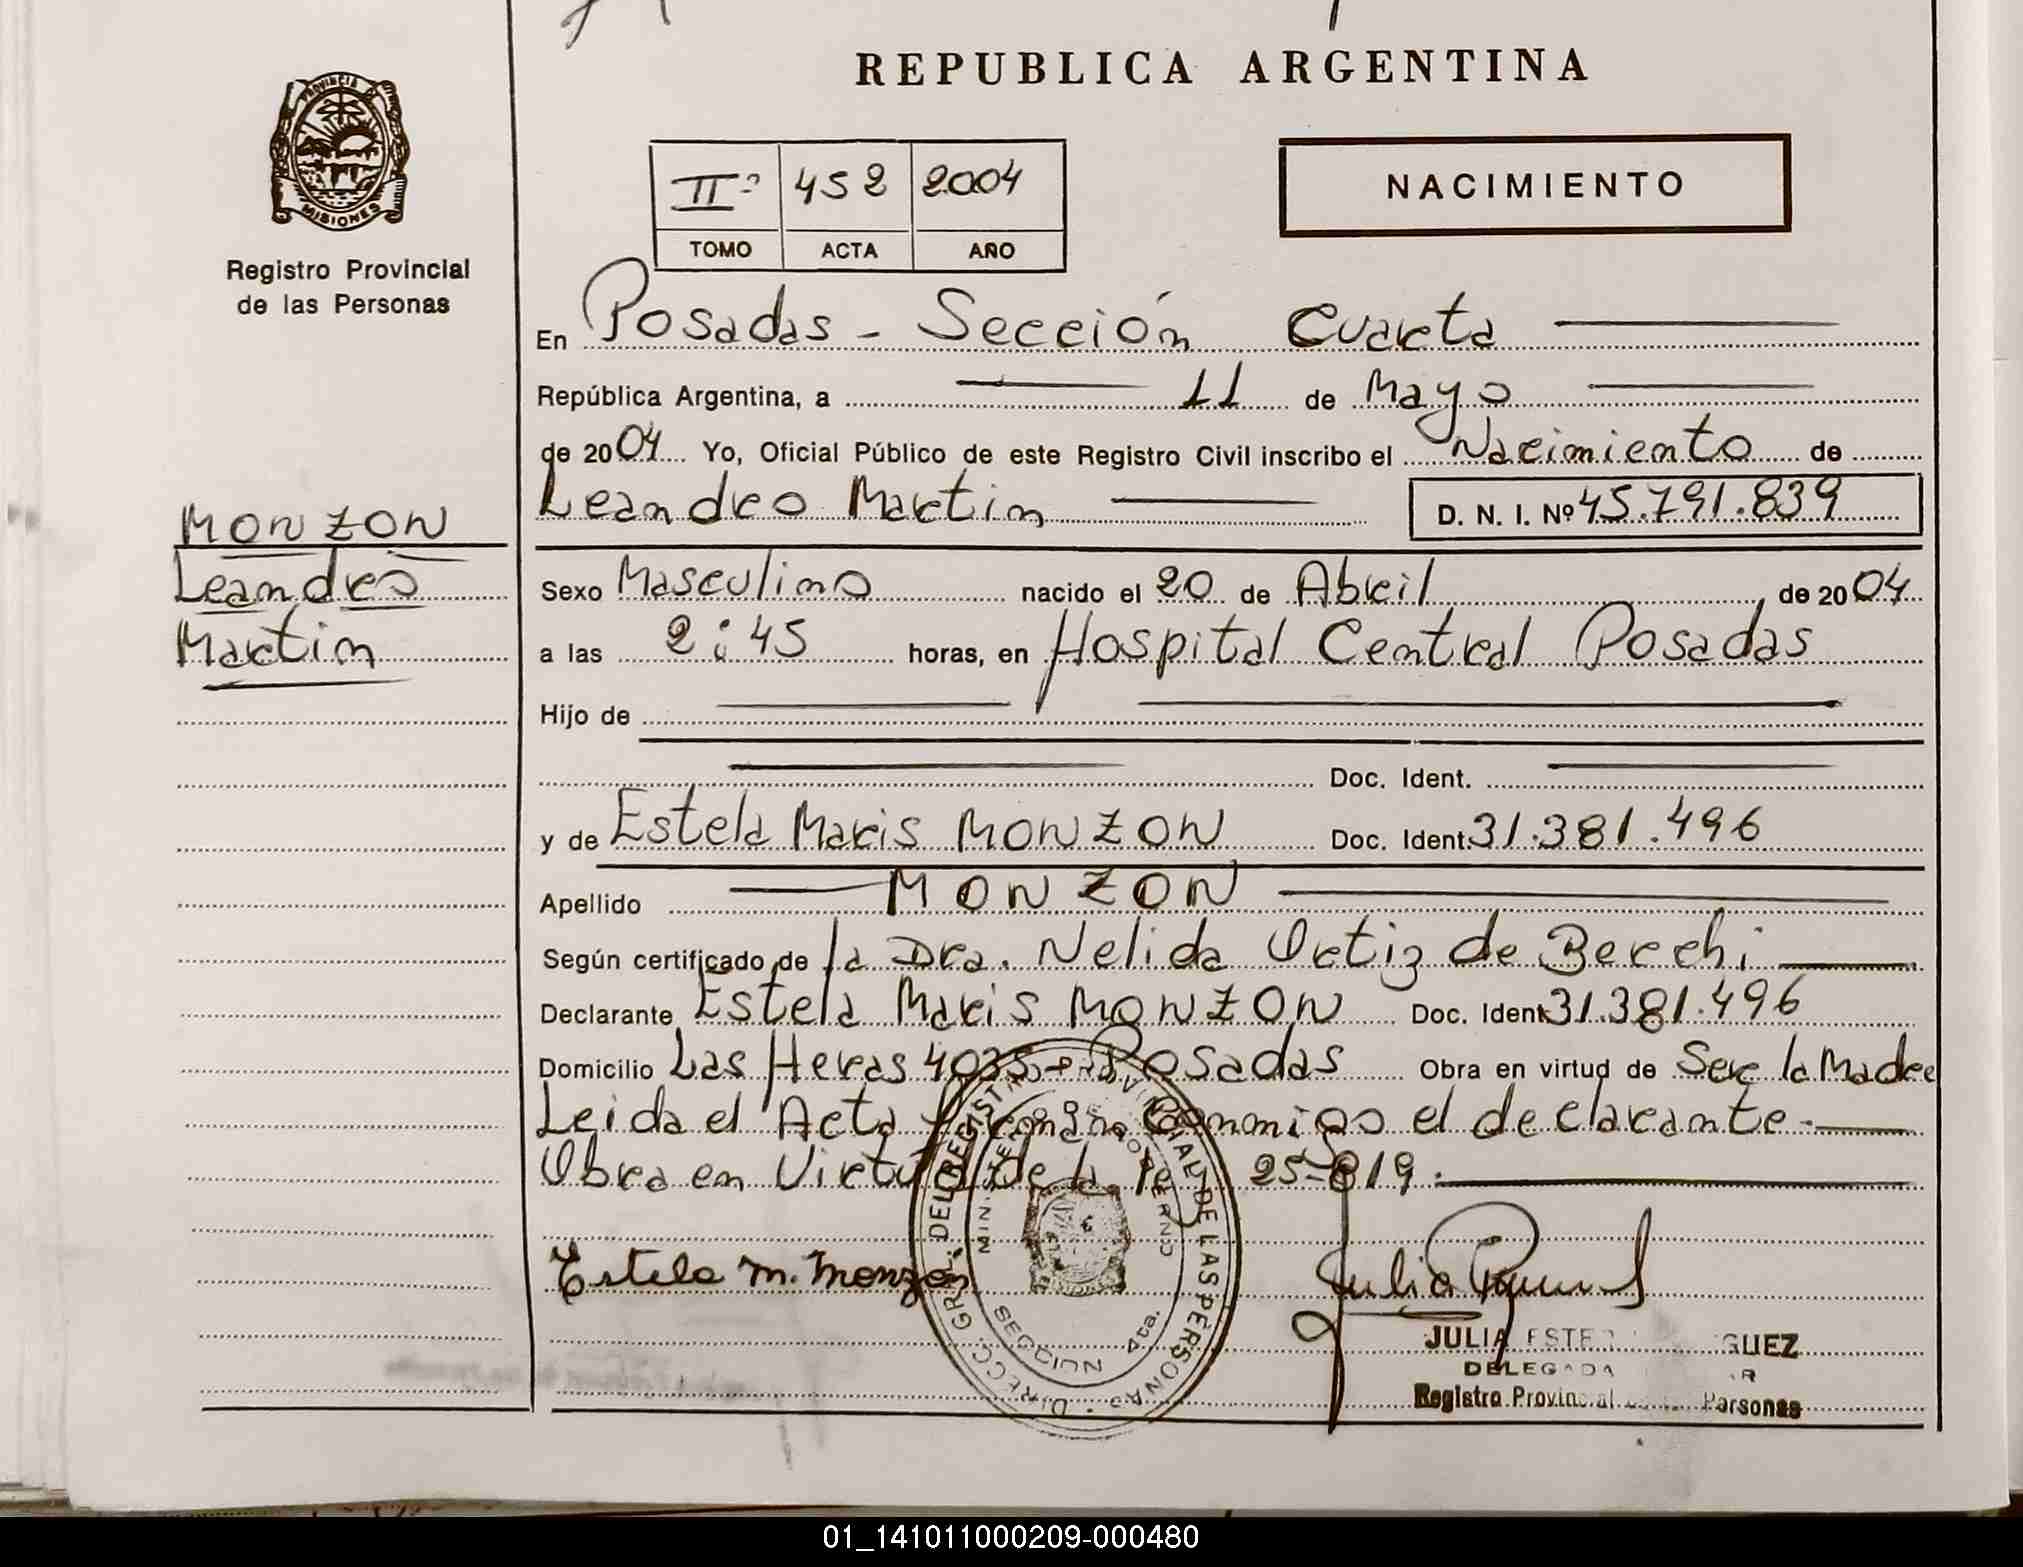 REPUBLICA ARGENTINA
PROVINCIA
MISIONES
Registro Provincial
de las Personas
IIº 452 2004
TOMO ACTA AÑO
NACIMIENTO
En Posadas - Sección Cuarta
República Argentina, a 11 de Mayo
de 2004 Yo, Oficial Público de este Registro Civil inscribo el Nacimiento de
Leandro Martin D. N. I. Nº 45.791.839
MONZON
Leandro
Martin
Sexo Masculino nacido el 20 de Abril de 2004
a las 2:45 horas, en Hospital Central Posadas
Hijo de
Doc. Ident.
y de Estela Maris MONZON Doc. Ident. 31.381.496
Apellido MONZON
Según certificado de la Dra. Nelida Ortiz de Berchi
Declarante Estela Maris MONZON Doc. Ident. 31.381.496
Domicilio Las Heras 4035 - Posadas Obra en virtud de Ser la Madre
Leida el Acta conmigo el declarante.
Obra en Virtud de la ley 25-819.
Estela M. Monzón
DIRECC. GRAL. DEL REGISTRO PROVINCIAL DE LAS PERSONAS
SECCION 4ta.
JULIA ESTE GUEZ
DELEGADA
Registro Provincial Personas
01_141011000209-000480